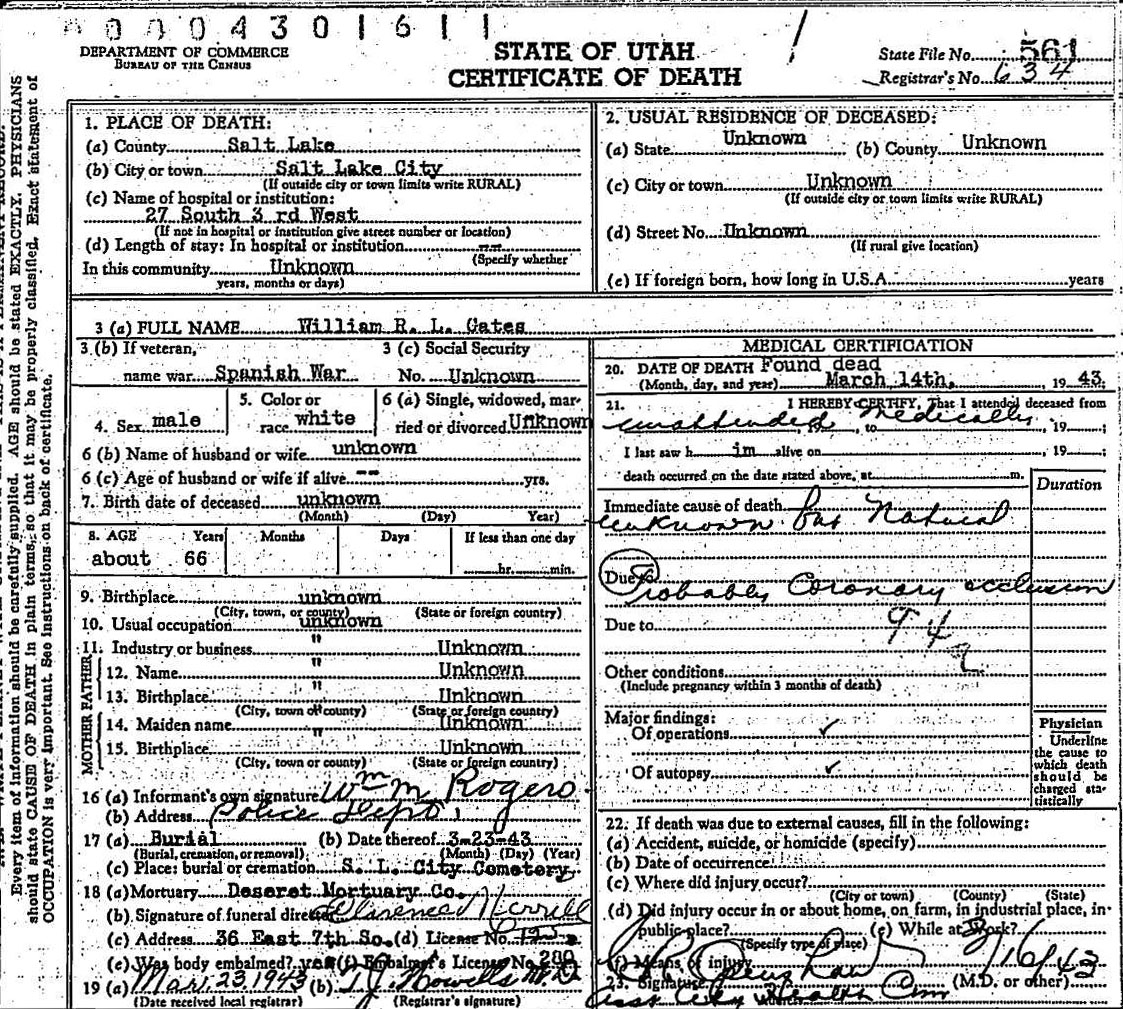 0004301611
DEPARTMENT OF COMMERCE
BUREAU OF THE CENSUS
STATE OF UTAH
CERTIFICATE OF DEATH
State File No. 561
Registrar's No. 634
Every item of information should be carefully supplied. AGE should be stated EXACTLY. PHYSICIANS
should state CAUSE OF DEATH in plain terms, so that it may be properly classified. Exact statement of
OCCUPATION is very important. See instructions on back of certificate.
1. PLACE OF DEATH:
(a) County Salt Lake
(b) City or town Salt Lake City
(If outside city or town limits write RURAL)
(c) Name of hospital or institution:
27 South 3 rd West
(If not in hospital or institution give street number or location)
(d) Length of stay: In hospital or institution --
(Specify whether
In this community Unknown
years, months or days)
2. USUAL RESIDENCE OF DECEASED:
(a) State Unknown (b) County Unknown
(c) City or town Unknown
(If outside city or town limits write RURAL)
(d) Street No. Unknown
(If rural give location)
(e) If foreign born, how long in U.S.A. years
3 (a) FULL NAME William R. L. Gates
3 (b) If veteran, name war Spanish War
3 (c) Social Security No. Unknown
4. Sex male
5. Color or race white
6 (a) Single, widowed, married or divorced Unknown
6 (b) Name of husband or wife unknown
6 (c) Age of husband or wife if alive -- yrs.
7. Birth date of deceased unknown
(Month) (Day) Year)
8. AGE Years Months Days If less than one day
about 66 hr. min.
9. Birthplace unknown
(City, town, or county) (State or foreign country)
10. Usual occupation unknown
11. Industry or business " Unknown
FATHER
12. Name " Unknown
13. Birthplace " Unknown
(City, town or county) (State or foreign country)
MOTHER
14. Maiden name " Unknown
15. Birthplace " Unknown
(City, town or county) (State or foreign country)
16 (a) Informant's own signature Wm M Rogers
(b) Address Police Dept.
17 (a) Burial (b) Date thereof 3-23-43
(Burial, cremation, or removal) (Month) (Day) (Year)
(c) Place: burial or cremation S. L. City Cemetery
18 (a) Mortuary Deseret Mortuary Co.
(b) Signature of funeral director Clarence Merrill
(c) Address 36 East 7th So. (d) License No.
(e) Was body embalmed? yes (f) Embalmer's License No. 280
19 (a) Mar. 23 1943 (b) T. J. Howells M.D.
(Date received local registrar) (Registrar's signature)
MEDICAL CERTIFICATION
20. DATE OF DEATH Found dead
(Month, day, and year) March 14th, 1943
21. I HEREBY CERTIFY, That I attended deceased from
unattended medically, 19
I last saw h im alive on , 19 ;
death occurred on the date stated above, at m.
Duration
Immediate cause of death
unknown but Natural
Due to
Probably Coronary occlusion
Due to
94
Other conditions
(Include pregnancy within 3 months of death)
Major findings:
Of operations ✓
Of autopsy ✓
Physician
Underline
the cause to
which death
should be
charged sta-
tistically
22. If death was due to external causes, fill in the following:
(a) Accident, suicide, or homicide (specify)
(b) Date of occurrence
(c) Where did injury occur?
(City or town) (County) (State)
(d) Did injury occur in or about home, on farm, in industrial place, in
public place? (e) While at work?
(Specify type of place)
(f) Means of injury
3/16/43
23. Signature (M.D. or other)
Asst City Health Com